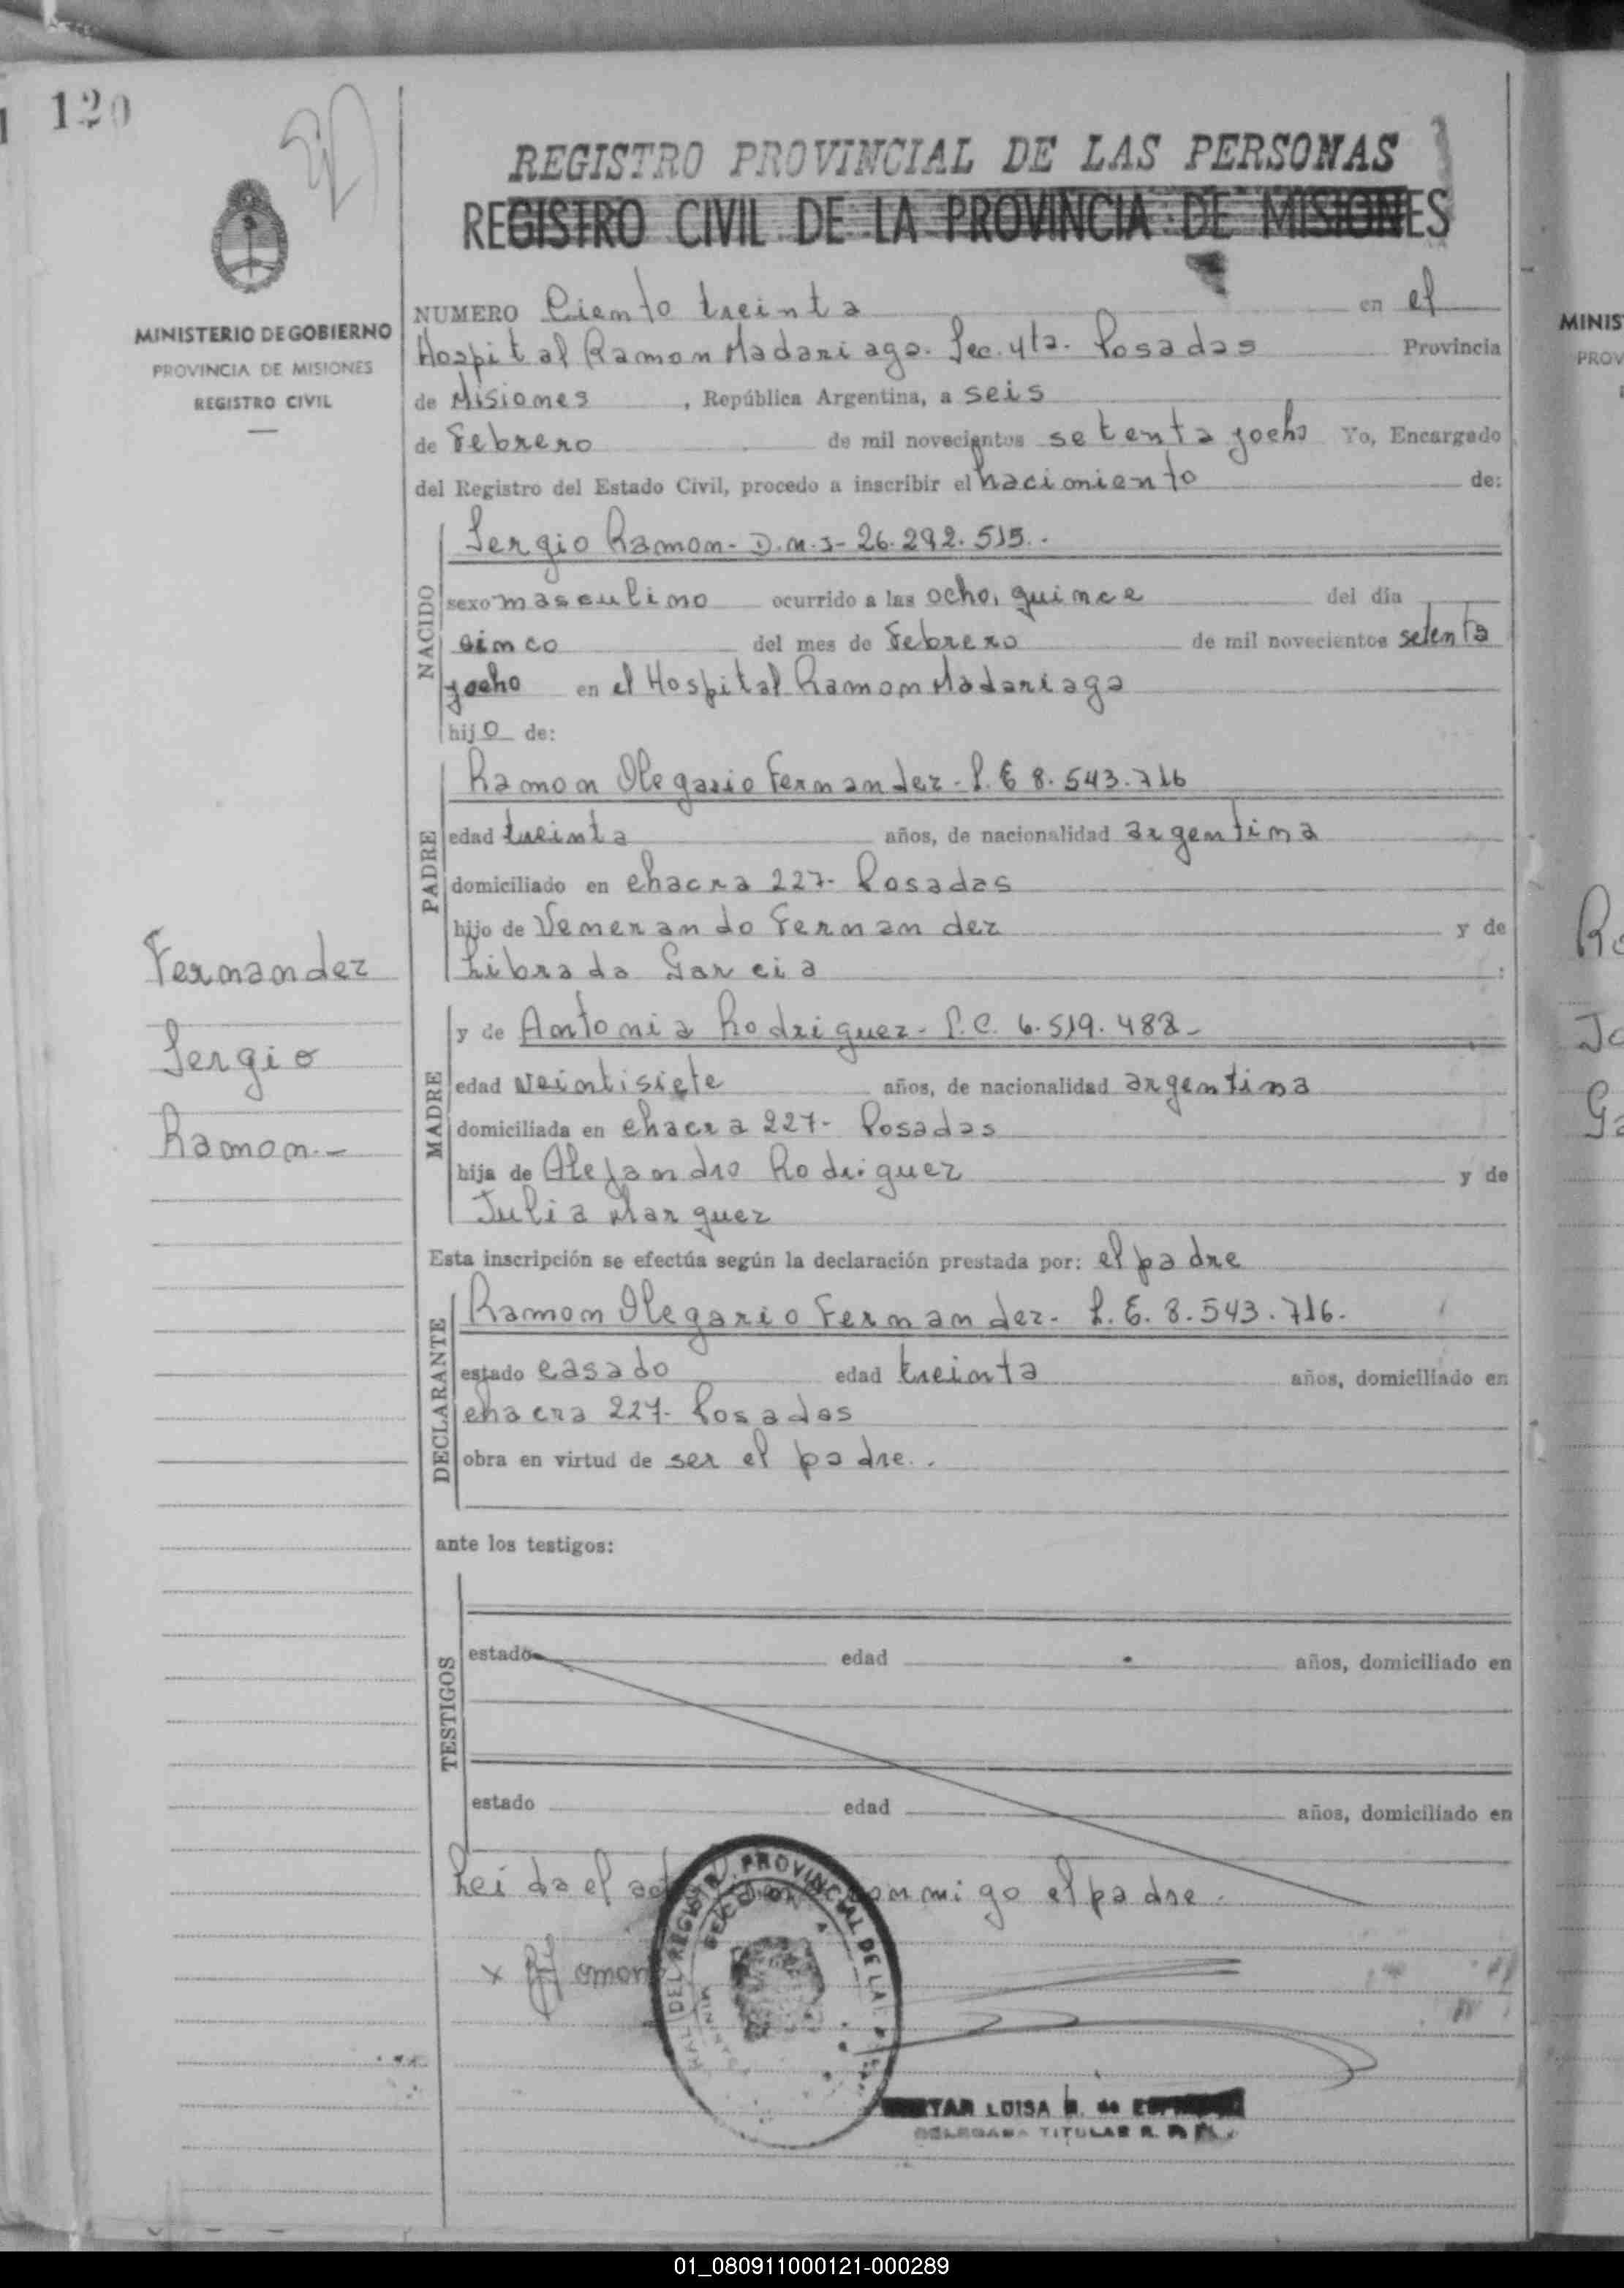 120
REGISTRO PROVINCIAL DE LAS PERSONAS
REGISTRO CIVIL DE LA PROVINCIA DE MISIONES
MINISTERIO DE GOBIERNO
PROVINCIA DE MISIONES
REGISTRO CIVIL
NUMERO Ciento treinta en el
Hospital Ramon Madariaga. Sec. 4ta. Posadas Provincia
de Misiones , República Argentina, a seis
de Febrero de mil novecientos setenta yocho Yo, Encargado
del Registro del Estado Civil, procedo a inscribir el nacimiento de:
NACIDO
Sergio Ramon- D.N.I- 26.292.515.-
sexo masculino ocurrido a las ocho, quince del día
cinco del mes de Febrero de mil novecientos setenta
yocho en el Hospital Ramon Madariaga
hijo de:
PADRE
Ramon Olegario Fernandez- L.E 8.543.716
edad treinta años, de nacionalidad argentina
domiciliado en chacra 227- Posadas
hijo de Venerando Fernandez y de
Librada Garcia :
Fernandez
Sergio
Ramon.-
MADRE
y de Antonia Rodriguez- L.C. 6.519.482-
edad veintisiete años, de nacionalidad argentina
domiciliada en chacra 227- Posadas
hija de Alejandro Rodriguez y de
Julia Marquez
Esta inscripción se efectúa según la declaración prestada por: el padre
DECLARANTE
Ramon Olegario Fernandez- L.E. 8.543.716.
estado casado edad treinta años, domiciliado en
chacra 227- Posadas
obra en virtud de ser el padre..
ante los testigos:
TESTIGOS
estado edad años, domiciliado en
estado edad años, domiciliado en
Leida el conmigo el padre.
x
PROVINCIAL DE LA
LUISA
DELEGADA TITULAR R.
MINIS
PROV
01_080911000121-000289